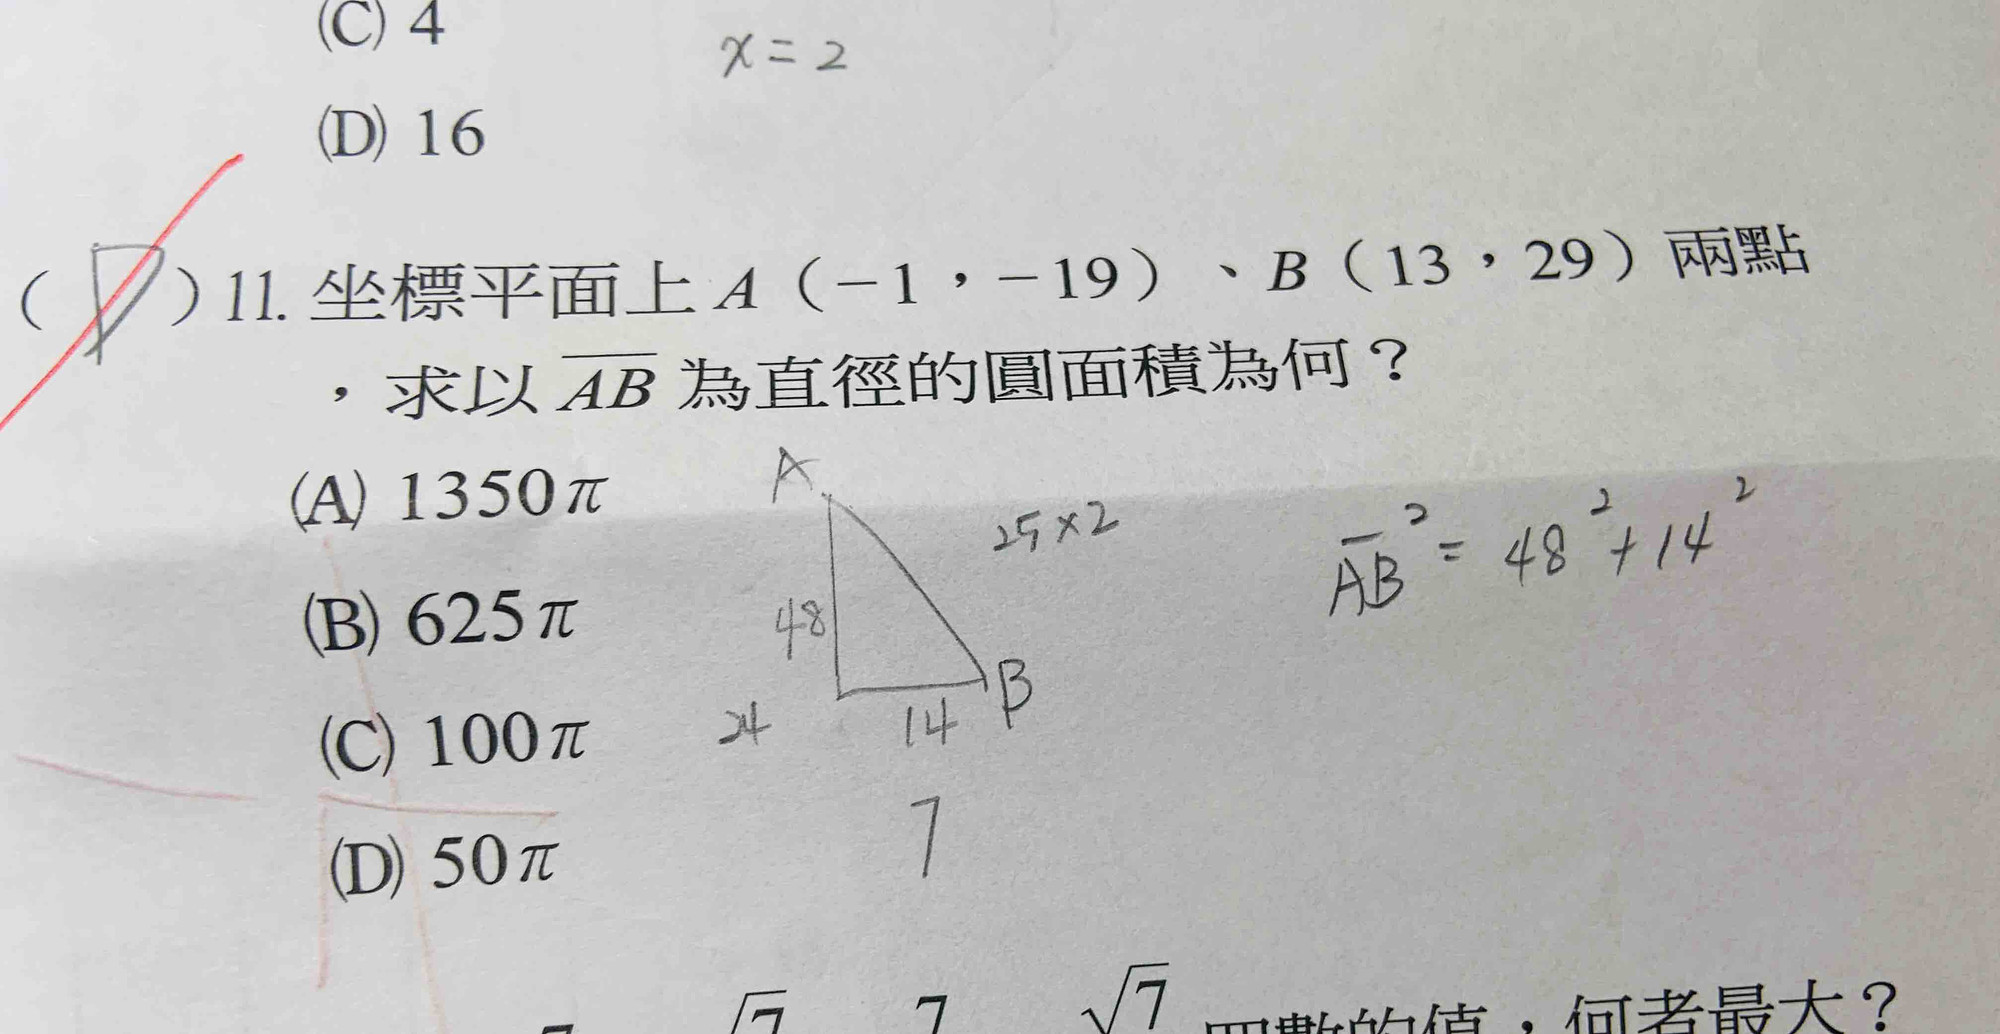 (C) 4
x = 2
(D) 16
( D ) 11. 坐標平面上 A（－1，－19）、B（13，29）兩點
，求以 AB 為直徑的圓面積為何？
(A) 1350π
(B) 625π
(C) 100π
(D) 50π
A
25×2
48
24
14
B
7
AB² = 48² + 14²
√7 7 √7 四數的值，何者最大？